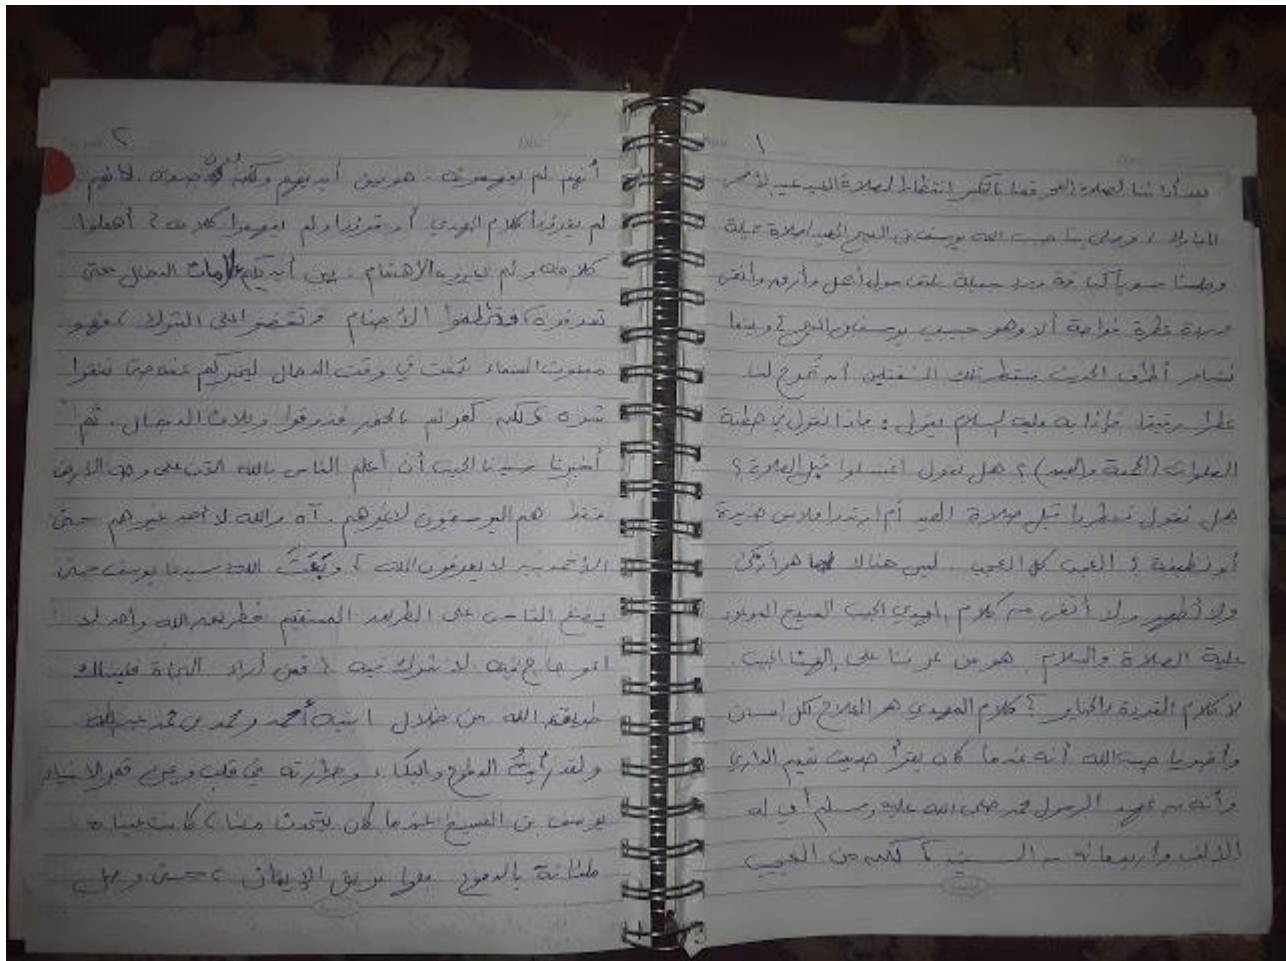 ١
بعد أدائنا لصلاة الفجر قمنا بالتكبير انتظارا لصلاة العيد عيد الأضحى
المبارك ، وصلى بنا حبيب الله يوسف بن المسيح العيد صلاة جميلة
وجلسنا سويا باقة ورد جميلة تلتف حول أجمل وأرق وأنقى
وردة عطرة فواحة ألا وهو حبيب يوسف بن المسيح ؟ وبينما
نتسامر أطراف الحديث منتظر تلك الشفتين أن تخرج لنا
عطرا رقيقا فإذا به عليه السلام يقول : ماذا نقول في خطبة
الصلوات (الجمعة والعيد) ؟ هل نقول اغتسلوا قبل الصلاة ؟
هل نقول تعطروا قبل صلاة العيد أم ارتدوا ملابس جديدة
أو نظيفة ؟ العجب كل العجب . ليس هنالا ما هو أزكى
ولا أطهر ولا أنقى من كلام المهدي الحبيب المسيح الموعود
عليه الصلاة والسلام هو من عرفنا على إلهنا الحبيب .
لا كلام القديم ؟ كلام المهدي هو العلاج لكل إنسان
وأخبرنا حبيب الله أنه عندما كان يقرأ حديث تميم الداري
وأنه من عهد الرسول محمد صلى الله عليه وسلم أي له
الألف وأربعمائة من السنين ؟ لكن من العجيب
٢
أنهم لم يفهمونه . هو بين أيديهم ولكنهم لأنهم
لم يقرؤا كلام المهدي أو قرؤا ولم يفهموا كلامه ؟ أهملوا
كلامه ولم يعيروه الاهتمام . بين أيديكم علامات الدجال حتى
تعرفوه الأصنام وتقضوا على الشرك ، فهو
مبعوث السماء بعث في وقت الدجال ليخبركم عنه حتى تتقوا
شره ولكن كفرتم بالخير فذوقوا ويلات الدجال . ثم
أخبرنا سيدنا الحبيب أن أعلم الناس بالله الآن على وجه الأرض
فقط هم اليوسفيون لا غيرهم . آه والله لا أحد غيرهم حتى
الأحمديين لا يعرفون الله ؟ وبعث الله سيدنا يوسف حتى
يضع الناس على الطريق المستقيم فطريق الله واحد لا
اعوجاج فيه لا شرك فيه ؟ فمن أراد النجاة فليسلك
طريق الله من خلال أحمد ومحمد بن محمد عبدالله
ولقد رأيت الدموع والبكاء وحرارته في قلب وعين قمر الأنبياء
يوسف بن المسيح عندما كان يتحدث معنا ، كانت عيناه
ملئانة بالدموع بريق الإيمان ، حتى وصل